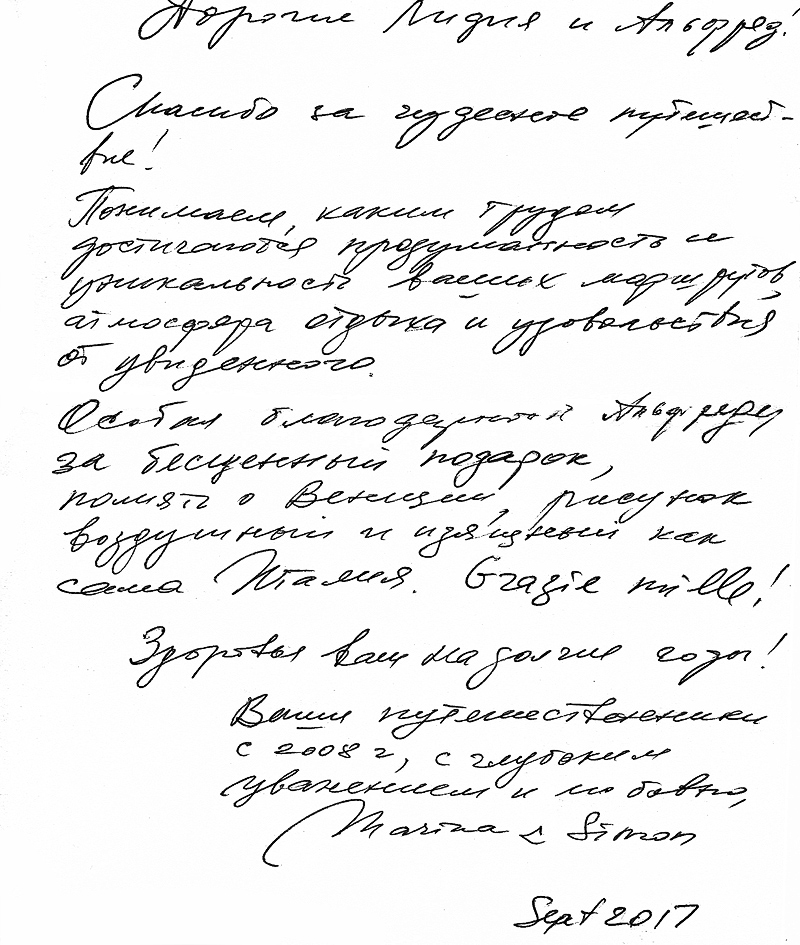 Дорогие Лидия и Альфред!
Спасибо за чудесное путешест-
вие!
Понимаем, каким трудом
достигаются продуманность и
уникальность ваших маршрутов,
атмосфера отдыха и удовольствия
от увиденного.
Особая благодарность Альфреду
за бесценный подарок,
память о Венеции, рисунок
воздушный и изящный как
сама Италия. Grazie mille!
Здоровья вам на долгие годы!
Ваши путешественники
с 2008 г, с глубоким
уважением и любовью,
Marina & Simon
Sept 2017